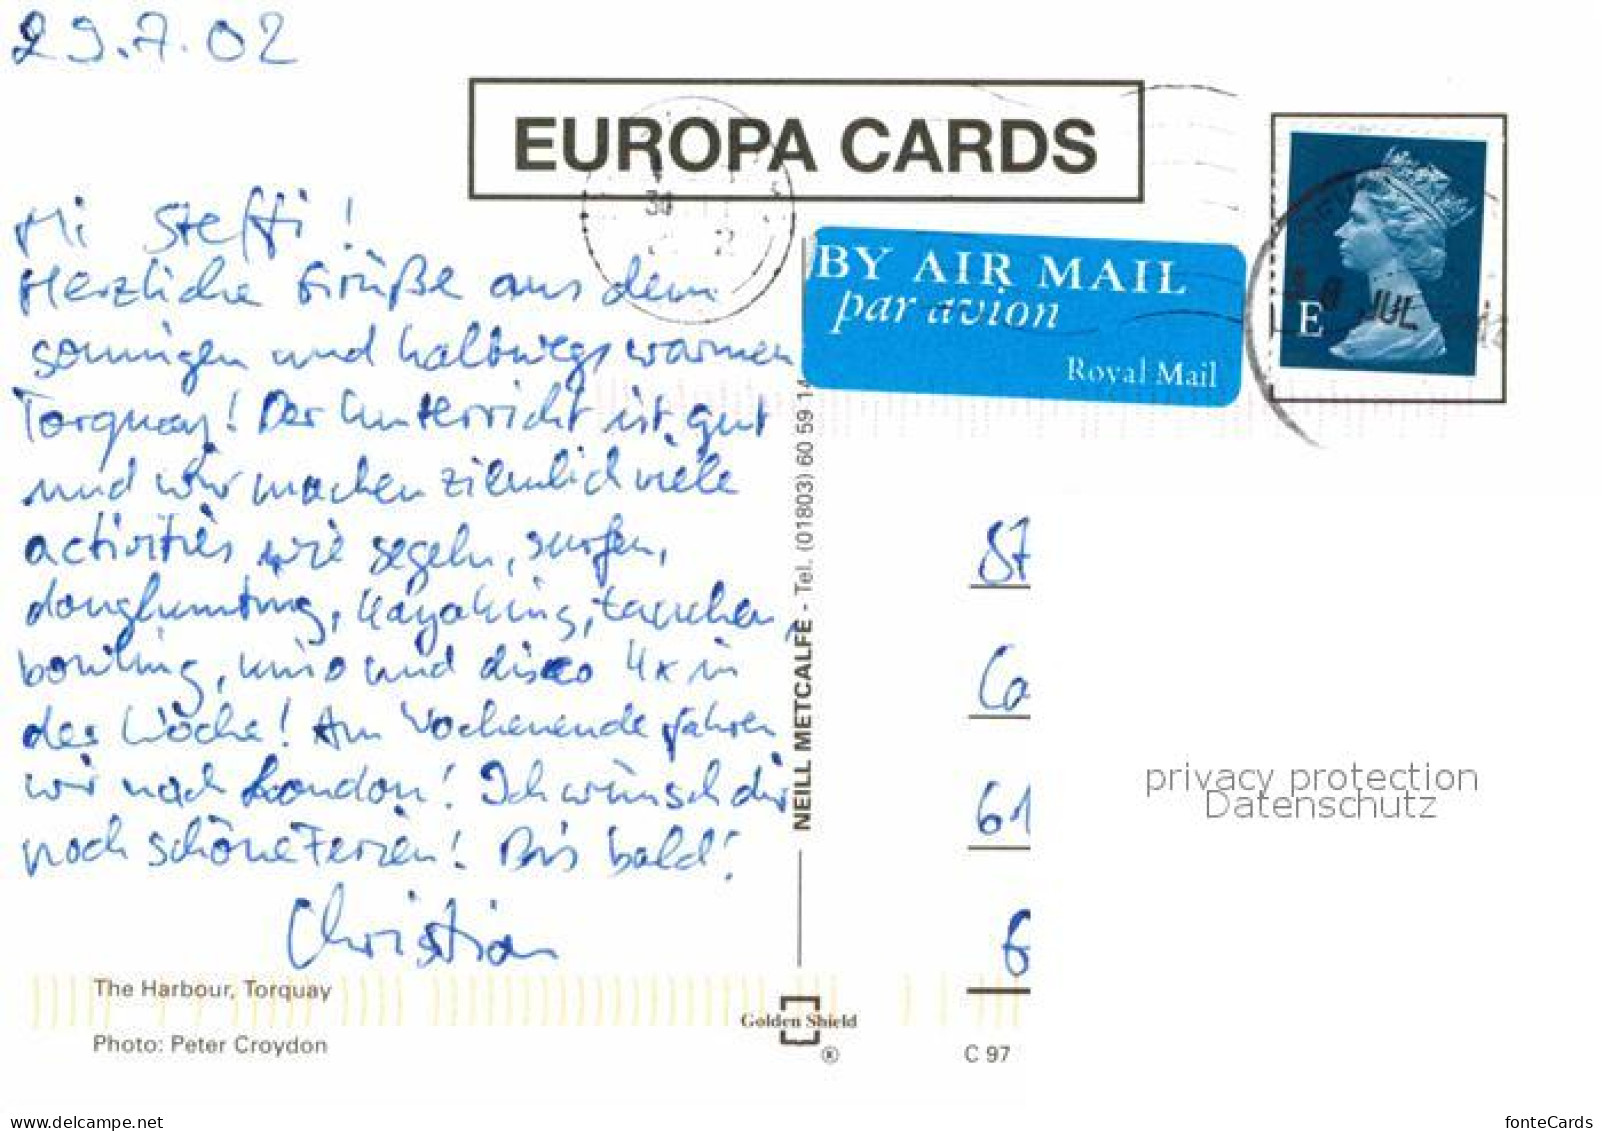 29.7.02
EUROPA CARDS
Hi Steffi!
Herzliche Grüße aus dem
sonnigen und halbwegs warmen
Torquay! Der Unterricht ist gut
und wir machen ziemlich viele
activities wie segeln, surfen,
kayaking, tauchen,
bowling, kino und disco 4x in
der Woche! Am Wochenende fahren
wir nach London! Ich wünsch dir
noch schöne Ferien! Bis bald!
Christian
The Harbour, Torquay
Photo: Peter Croydon
NEILL METCALFE - Tel. (01803) 60 59 14
Golden Shield
®
BY AIR MAIL
par avion
Royal Mail
E
JUL
30
2
St
Ca
61
C 97
privacy protection
Datenschutz
www.delcampe.net
fonteCards